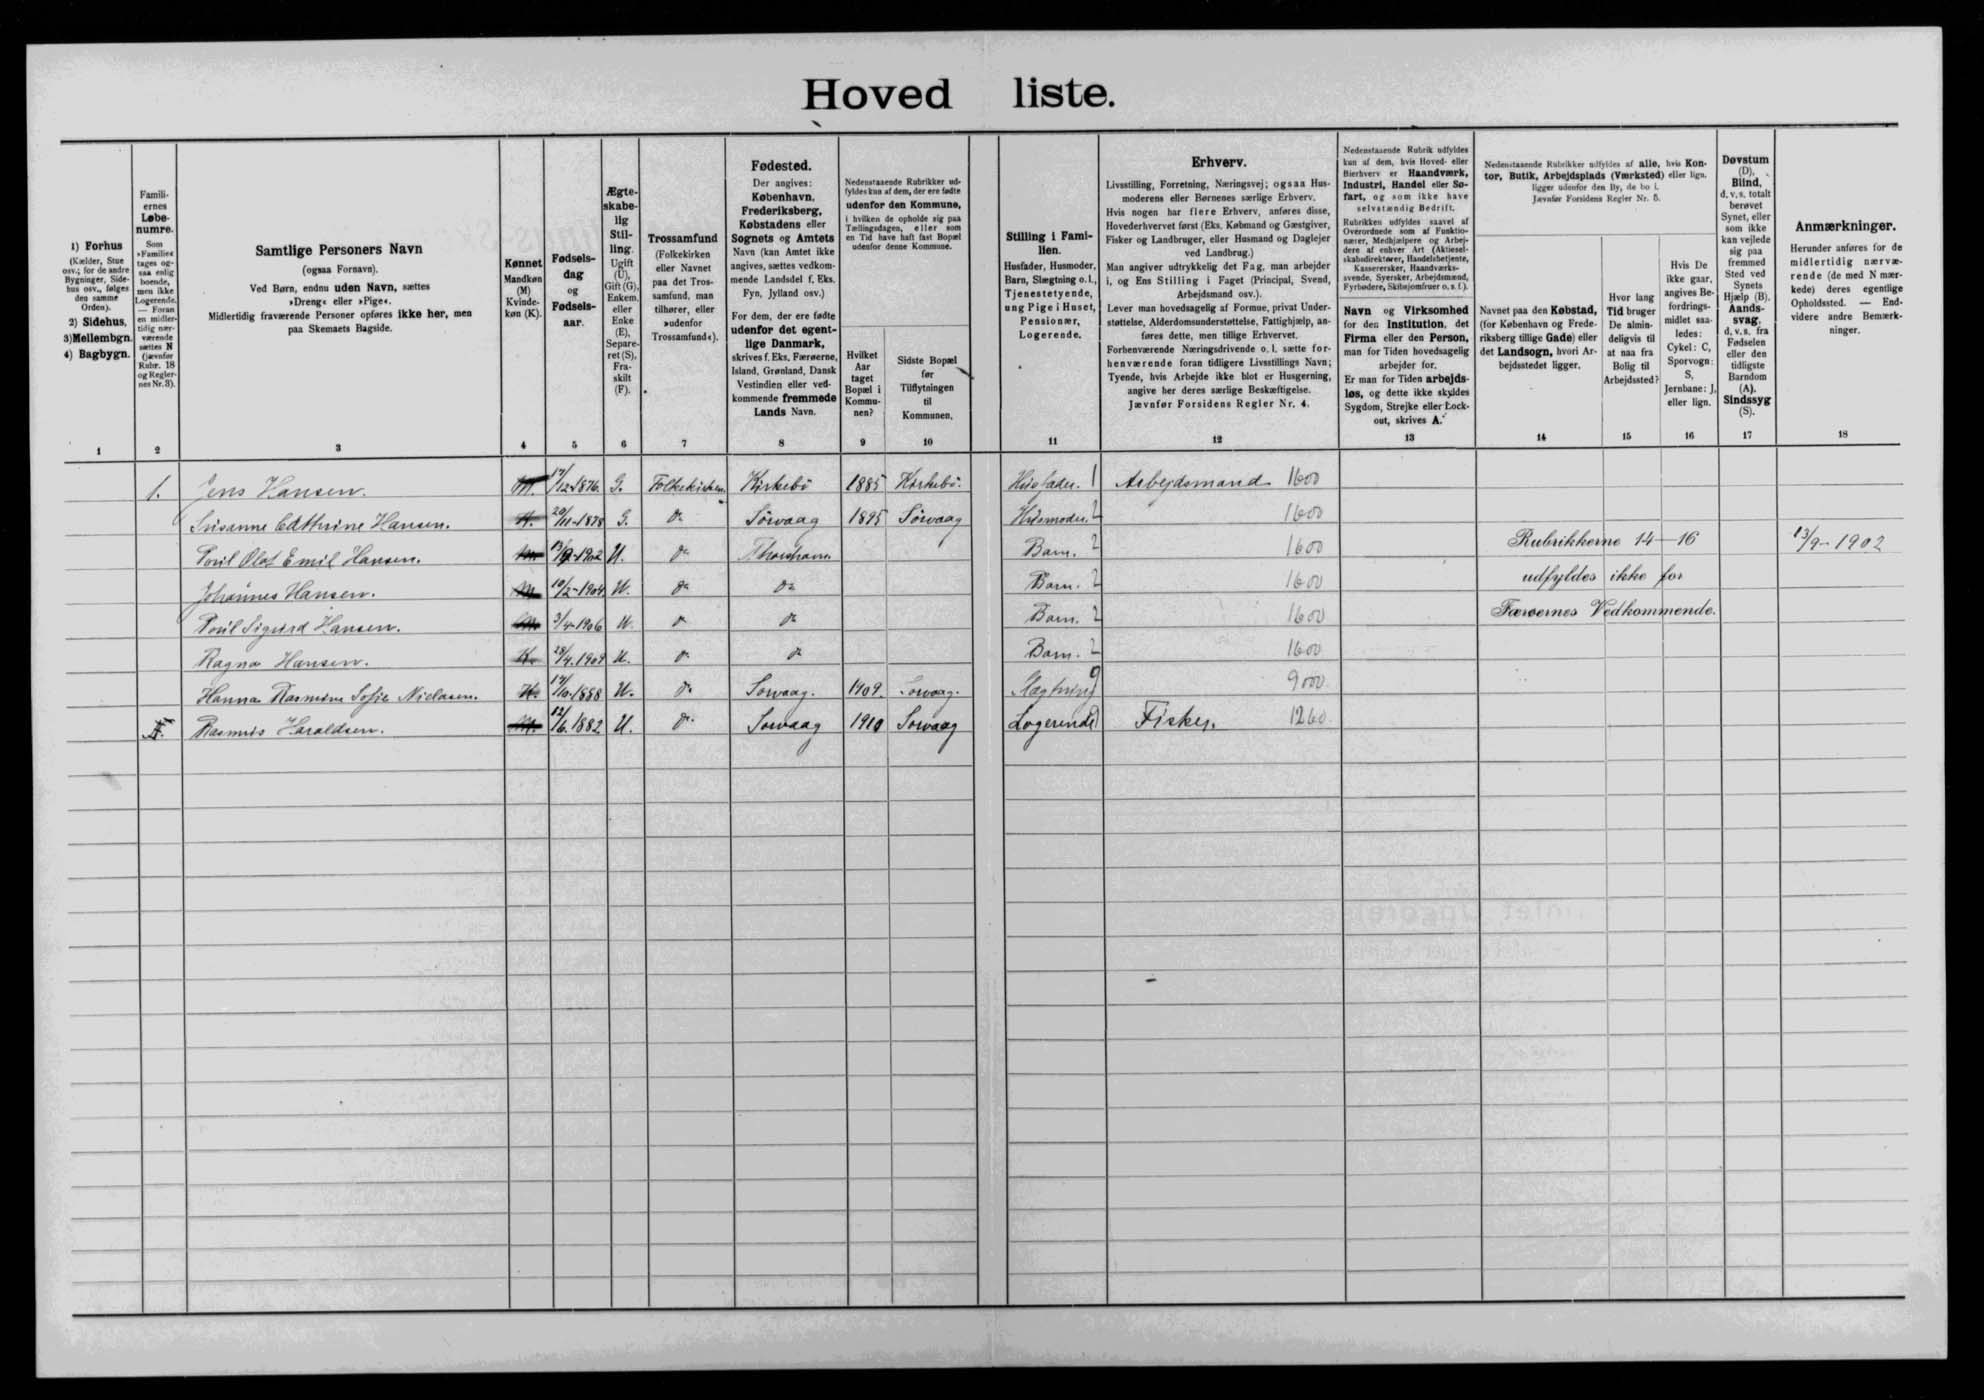 Hoved liste.
1) Forhus
(Kælder, Stue
osv.; for de andre
Bygninger, Side-
hus osv., følges
den samme
Orden).
2) Sidehus,
3) Mellembgn.
4) Bagbygn.
1
Famili-
ernes
Løbe-
numre.
Som
»Familie«
tages og-
saa enlig
boende,
men ikke
Logerende.
— Foran
en midler-
tidig nær-
værende
sættes N
(jævnfør
Rubr. 18
og Regler-
nes Nr. 3).
2
Samtlige Personers Navn
(ogsaa Fornavn).
Ved Børn, endnu uden Navn, sættes
»Dreng« eller »Pige«.
Midlertidig fraværende Personer opføres ikke her, men
paa Skemaets Bagside.
3
Kønnet
Mandkøn
(M)
Kvinde-
køn (K).
4
Fødsels-
dag
og
Fødsels-
aar.
5
Ægte-
skabe-
lig
Stil-
ling.
Ugift
(U),
Gift (G),
Enkem.
eller
Enke
(E),
Separe-
ret (S),
Fra-
skilt
(F).
6
Trossamfund
(Folkekirken
eller Navnet
paa det Tros-
samfund, man
tilhører, eller
»udenfor
Trossamfund«).
7
Fødested.
Der angives:
København,
Frederiksberg,
Købstadens eller
Sognets og Amtets
Navn (kan Amtet ikke
angives, sættes vedkom-
mende Landsdel f. Eks.
Fyn, Jylland osv.)
For dem, der ere fødte
udenfor det egent-
lige Danmark,
skrives f. Eks. Færøerne,
Island, Grønland, Dansk
Vestindien eller ved-
kommende fremmede
Lands Navn.
8
Nedenstaaende Rubrikker ud-
fyldes kun af dem, der ere fødte
udenfor den Kommune,
i hvilken de opholde sig paa
Tællingsdagen, eller som
en Tid have haft fast Bopæl
udenfor denne Kommune.
Hvilket
Aar
taget
Bopæl i
Kommu-
nen?
9
Sidste Bopæl
før
Tilflytningen
til
Kommunen.
10
Stilling i Fami-
lien.
Husfader, Husmoder,
Barn, Slægtning o. l.,
Tjenestetyende,
ung Pige i Huset,
Pensionær,
Logerende.
11
Erhverv.
Livsstilling, Forretning, Næringsvej; ogsaa Hus-
moderens eller Børnenes særlige Erhverv.
Hvis nogen har flere Erhverv, anføres disse,
Hovederhvervet først (Eks. Købmand og Gæstgiver,
Fisker og Landbruger, eller Husmand og Daglejer
ved Landbrug.)
Man angiver udtrykkelig det Fag, man arbejder
i, og Ens Stilling i Faget (Principal, Svend,
Arbejdsmand osv.).
Lever man hovedsagelig af Formue, privat Under-
støttelse, Alderdomsunderstøttelse, Fattighjælp, an-
føres dette, men tillige Erhvervet.
Forhenværende Næringsdrivende o. l. sætte for-
henværende foran tidligere Livsstillings Navn;
Tyende, hvis Arbejde ikke blot er Husgerning,
angive her deres særlige Beskæftigelse.
Jævnfør Forsidens Regler Nr. 4.
12
Nedenstaaende Rubrik udfyldes
kun af dem, hvis Hoved- eller
Bierhverv er Haandværk,
Industri, Handel eller Sø-
fart, og som ikke have
selvstændig Bedrift.
Rubrikken udfyldes saavel af
Overordnede som af Funktio-
nærer, Medhjælpere og Arbej-
dere af enhver Art (Aktiesel-
skabsdirektører, Handelsbetjente,
Kasserersker, Haandværks-
svende, Syersker, Arbejdsmænd,
Fyrbødere, Skibsjomfruer o. s. f.).
Navn og Virksomhed
for den Institution, det
Firma eller den Person,
man for Tiden hovedsagelig
arbejder for.
Er man for Tiden arbejds-
løs, og dette ikke skyldes
Sygdom, Strejke eller Lock-
out, skrives A.
13
Nedenstaaende Rubrikker udfyldes af alle, hvis Kon-
tor, Butik, Arbejdsplads (Værksted) eller lign.
ligger udenfor den By, de bo i.
Jævnfør Forsidens Regler Nr. 5.
Navnet paa den Købstad,
(for København og Frede-
riksberg tillige Gade) eller
det Landsogn, hvori Ar-
bejdsstedet ligger.
14
Hvor lang
Tid bruger
De almin-
deligvis til
at naa fra
Bolig til
Arbejdssted?
15
Hvis De
ikke gaar,
angives Be-
fordrings-
midlet saa-
ledes:
Cykel: C,
Sporvogn:
S,
Jernbane: J,
eller lign.
16
Døvstum
(D),
Blind,
d. v. s. totalt
berøvet
Synet, eller
som ikke
kan vejlede
sig paa
fremmed
Sted ved
Synets
Hjælp (B).
Aands-
svag,
d. v. s. fra
Fødselen
eller den
tidligste
Barndom
(A).
Sindssyg
(S).
17
Anmærkninger.
Herunder anføres for de
midlertidig nærvæ-
rende (de med N mær-
kede) deres egentlige
Opholdssted. — End-
videre andre Bemærk-
ninger.
18
1. Jens Hansen. M. 17/12-1876. G. Folkekirken Kirkebö 1885 Kirkebö. Husfader. 1 Arbejdsmand 1600
Susanne Cathrine Hansen. K. 20/11-1878 G. do Sörvaag 1895 Sörvaag Husmoder. 2 1600
Poul Olaf Emil Hansen. M 13/9-1902 U. do Thorshavn Barn. 2 1600 Rubrikkerne 14-16 13/9-1902
Johannes Hansen. M. 10/2-1904 U. do do Barn. 2 1600 udfyldes ikke for
Poul Sigurd Hansen. M 3/4-1906 U. do do Barn. 2 1600 Færøernes Vedkommende.
Ragna Hansen. K. 28/4.1909 U. do do Barn. 2 1600
Hanna Rasmine Sofie Nielasen. K. 1888 U. do Sorvaag. 1909. Sorvaag. Slægtning 9 9000
Rasmus Haraldsen. M. 12/6.1882 U. do Sorvaag 1910 Sorvaag Logerende Fisker. 1260.